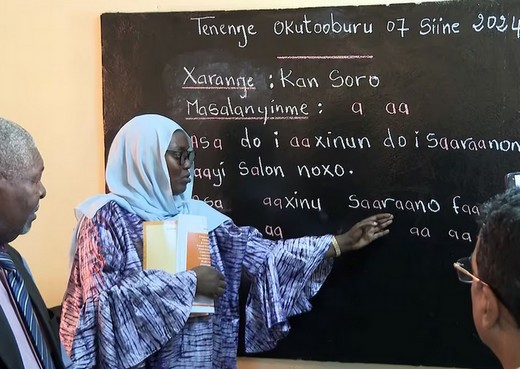 Tenenŋe Okutooburu 07 Siine 2024
Xaranŋe : Kan Soro
Masalanyinme : a aa
Asa do i aaxinun do i saaraanon
salon noxo.
aaxinu saaraano
aa aa aa